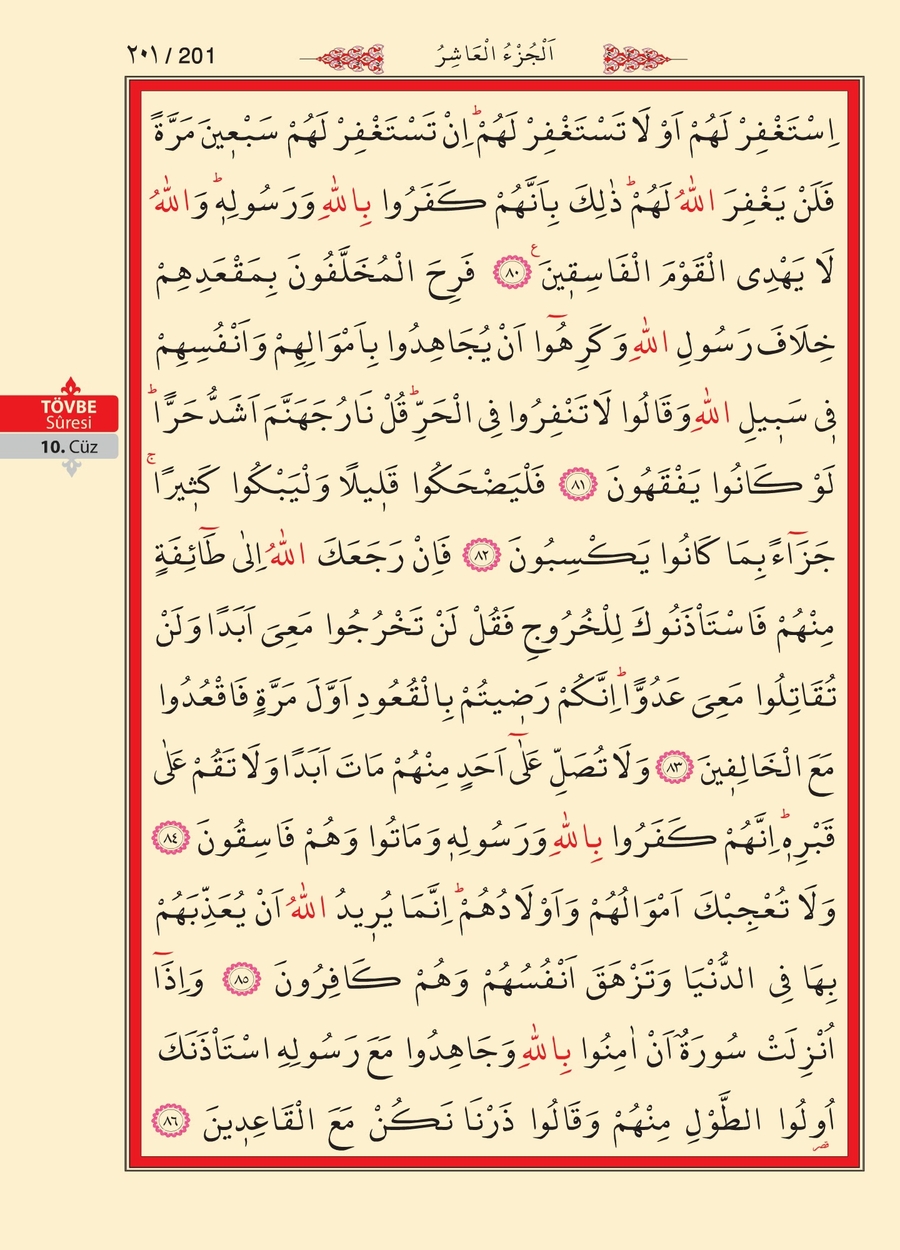 ٢٠١ / 201
اَلْجُزْءُ الْعَاشِرُ
اِسْتَغْفِرْ لَهُمْ اَوْ لَا تَسْتَغْفِرْ لَهُمْۜ اِنْ تَسْتَغْفِرْ لَهُمْ سَبْع۪ينَ مَرَّةً
فَلَنْ يَغْفِرَ اللّٰهُ لَهُمْۜ ذٰلِكَ بِاَنَّهُمْ كَفَرُوا بِاللّٰهِ وَرَسُولِه۪ۜ وَاللّٰهُ
لَا يَهْدِي الْقَوْمَ الْفَاسِق۪ينَ ع ٨٠ فَرِحَ الْمُخَلَّفُونَ بِمَقْعَدِهِمْ
خِلَافَ رَسُولِ اللّٰهِ وَكَرِهُٓوا اَنْ يُجَاهِدُوا بِاَمْوَالِهِمْ وَاَنْفُسِهِمْ
ف۪ي سَب۪يلِ اللّٰهِ وَقَالُوا لَا تَنْفِرُوا فِي الْحَرِّۜ قُلْ نَارُ جَهَنَّمَ اَشَدُّ حَرًّاۜ
لَوْ كَانُوا يَفْقَهُونَ ٨١ فَلْيَضْحَكُوا قَل۪يلًا وَلْيَبْكُوا كَث۪يرًاۚ
جَزَٓاءً بِمَا كَانُوا يَكْسِبُونَ ٨٢ فَاِنْ رَجَعَكَ اللّٰهُ اِلٰى طَٓائِفَةٍ
مِنْهُمْ فَاسْتَأْذَنُوكَ لِلْخُرُوجِ فَقُلْ لَنْ تَخْرُجُوا مَعِيَ اَبَدًا وَلَنْ
تُقَاتِلُوا مَعِيَ عَدُوًّاۜ اِنَّكُمْ رَض۪يتُمْ بِالْقُعُودِ اَوَّلَ مَرَّةٍ فَاقْعُدُوا
مَعَ الْخَالِف۪ينَ ٨٣ وَلَا تُصَلِّ عَلٰٓى اَحَدٍ مِنْهُمْ مَاتَ اَبَدًا وَلَا تَقُمْ عَلٰى
قَبْرِه۪ۜ اِنَّهُمْ كَفَرُوا بِاللّٰهِ وَرَسُولِه۪ وَمَاتُوا وَهُمْ فَاسِقُونَ ٨٤
وَلَا تُعْجِبْكَ اَمْوَالُهُمْ وَاَوْلَادُهُمْۜ اِنَّمَا يُر۪يدُ اللّٰهُ اَنْ يُعَذِّبَهُمْ
بِهَا فِي الدُّنْيَا وَتَزْهَقَ اَنْفُسُهُمْ وَهُمْ كَافِرُونَ ٨٥ وَاِذَٓا
اُنْزِلَتْ سُورَةٌ اَنْ اٰمِنُوا بِاللّٰهِ وَجَاهِدُوا مَعَ رَسُولِهِ اسْتَأْذَنَكَ
اُو۬لُوا الطَّوْلِ مِنْهُمْ وَقَالُوا ذَرْنَا نَكُنْ مَعَ الْقَاعِد۪ينَ ٨٦
قصر
TÖVBE
Sûresi
10. Cüz